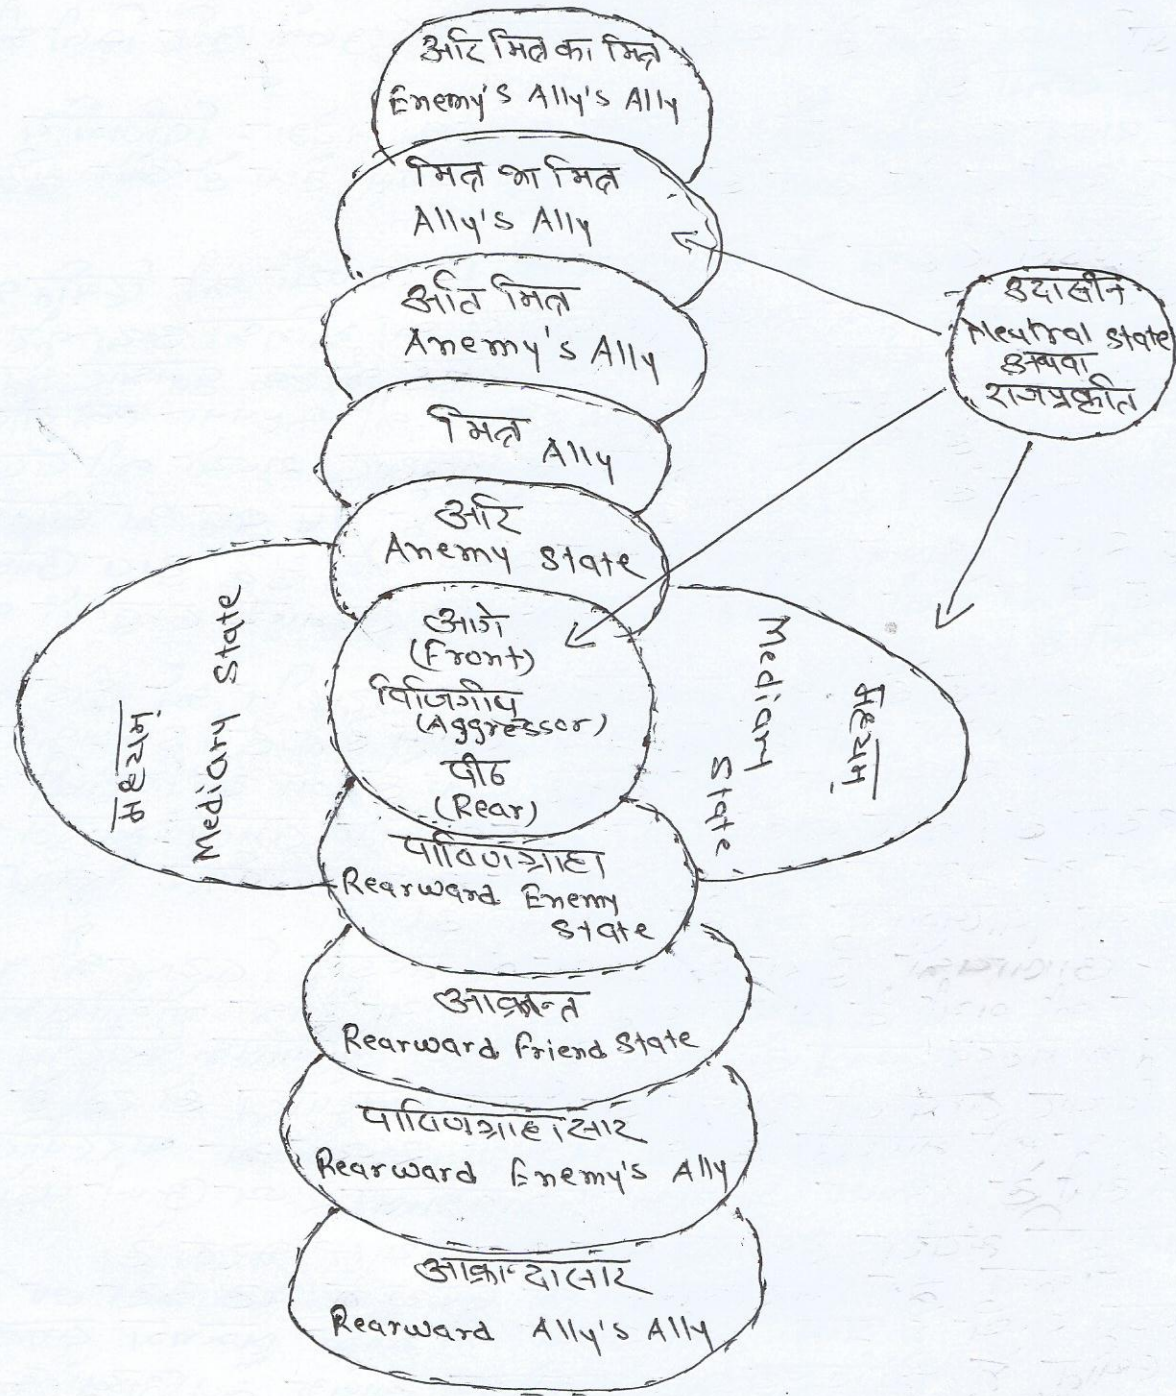 अरि मित्र का मित्र
Enemy's Ally's Ally
मित्र का मित्र
Ally's Ally
अरि मित्र
Anemy's Ally
मित्र Ally
अरि
Anemy State
उदासीन
Neutral state
अथवा
राजप्रकृति
आगे
(Front)
विजिगीष
(Aggressor)
पीठ
(Rear)
मध्यम
Mediary State
Mediary
State
मध्यम
पार्ष्णिग्राहा
Rearward Enemy
State
आक्रान्त
Rearward Friend State
पार्ष्णिग्राहासार
Rearward Enemy's Ally
आक्रान्दासार
Rearward Ally's Ally